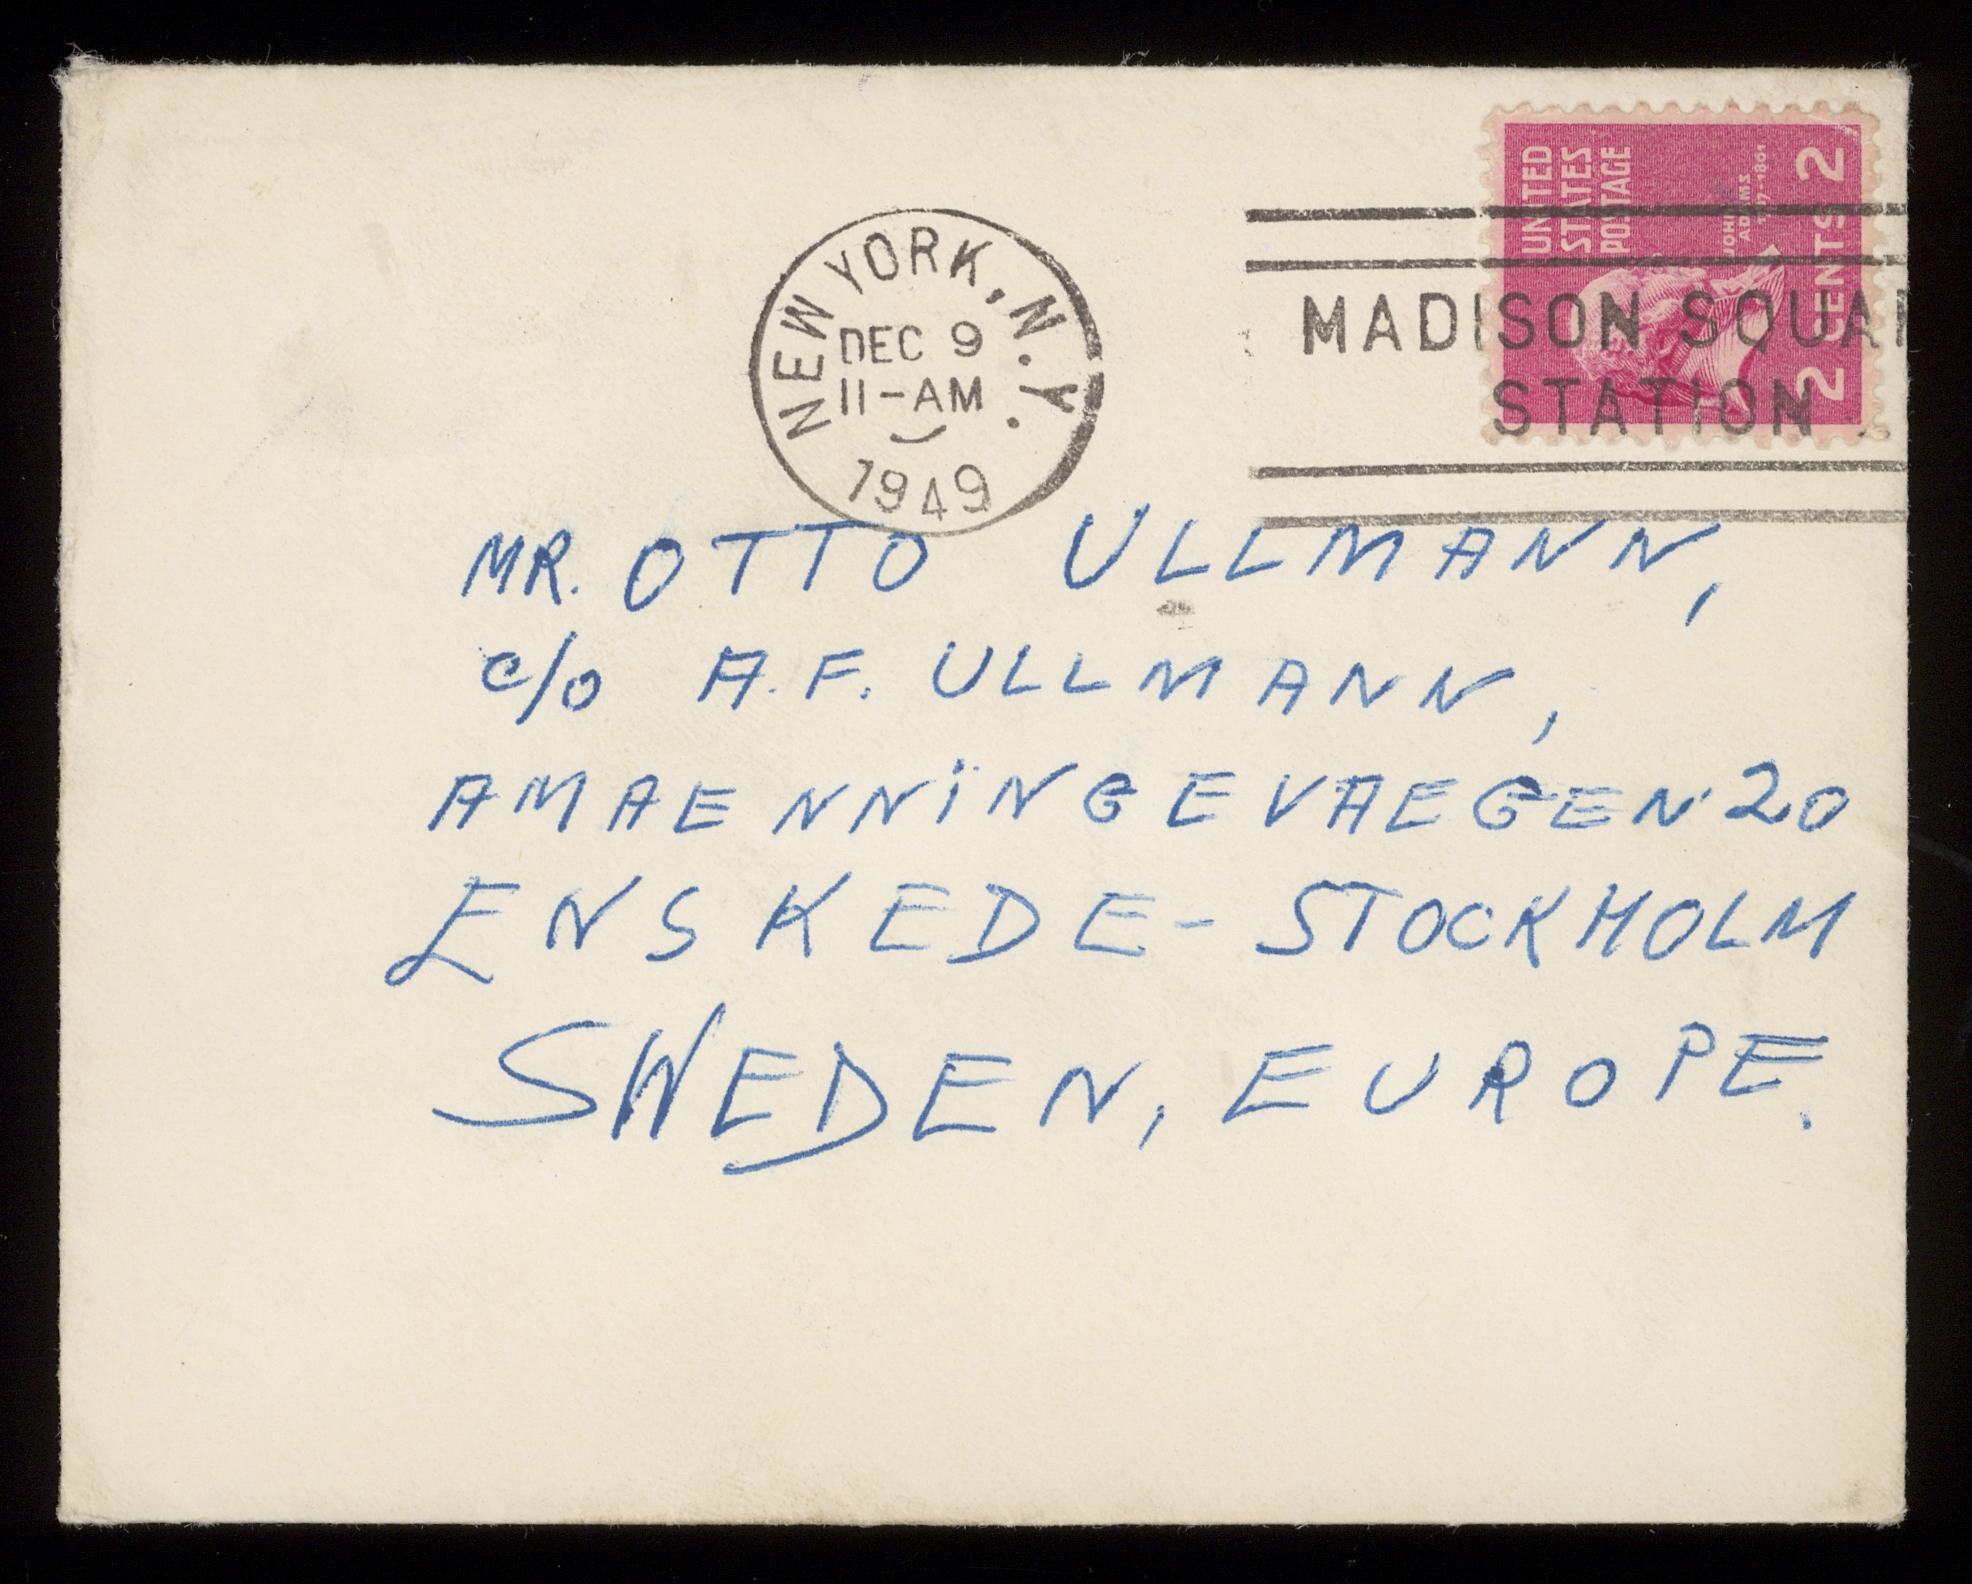 NEW YORK, N.Y.
DEC 9
11-AM
1949
UNITED
STATES
POSTAGE
JOHN
ADAMS
2 CENTS 2
MADISON SQUAR
STATION
MR. OTTO ULLMANN,
c/o A.F. ULLMANN,
AMAENNINGEVAEGEN 20
ENSKEDE - STOCKHOLM
SWEDEN, EUROPE.